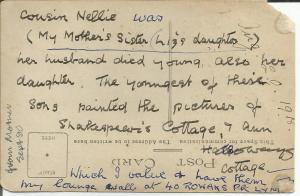 Cousin Nellie was
(My Mother's Sister Liz's daughter)
her husband died young, also her
daughter. The youngest of these
Sons painted the pictures of
Shakespear's Cottage, & Ann
Hathaways
Cottage
Which I value & have them
my lounge walls at 40 ROWANS
POST CARD
The Address to be written here
from Mother